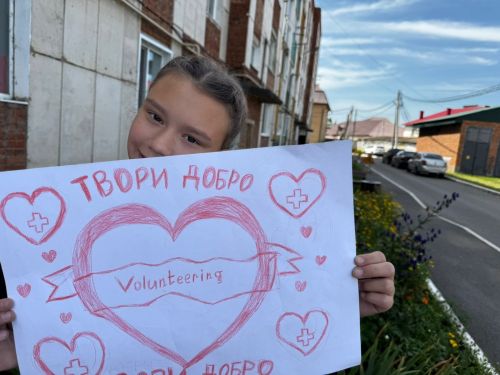 ТВОРИ ДОБРО
Volunteering
ТВОРИ ДОБРО